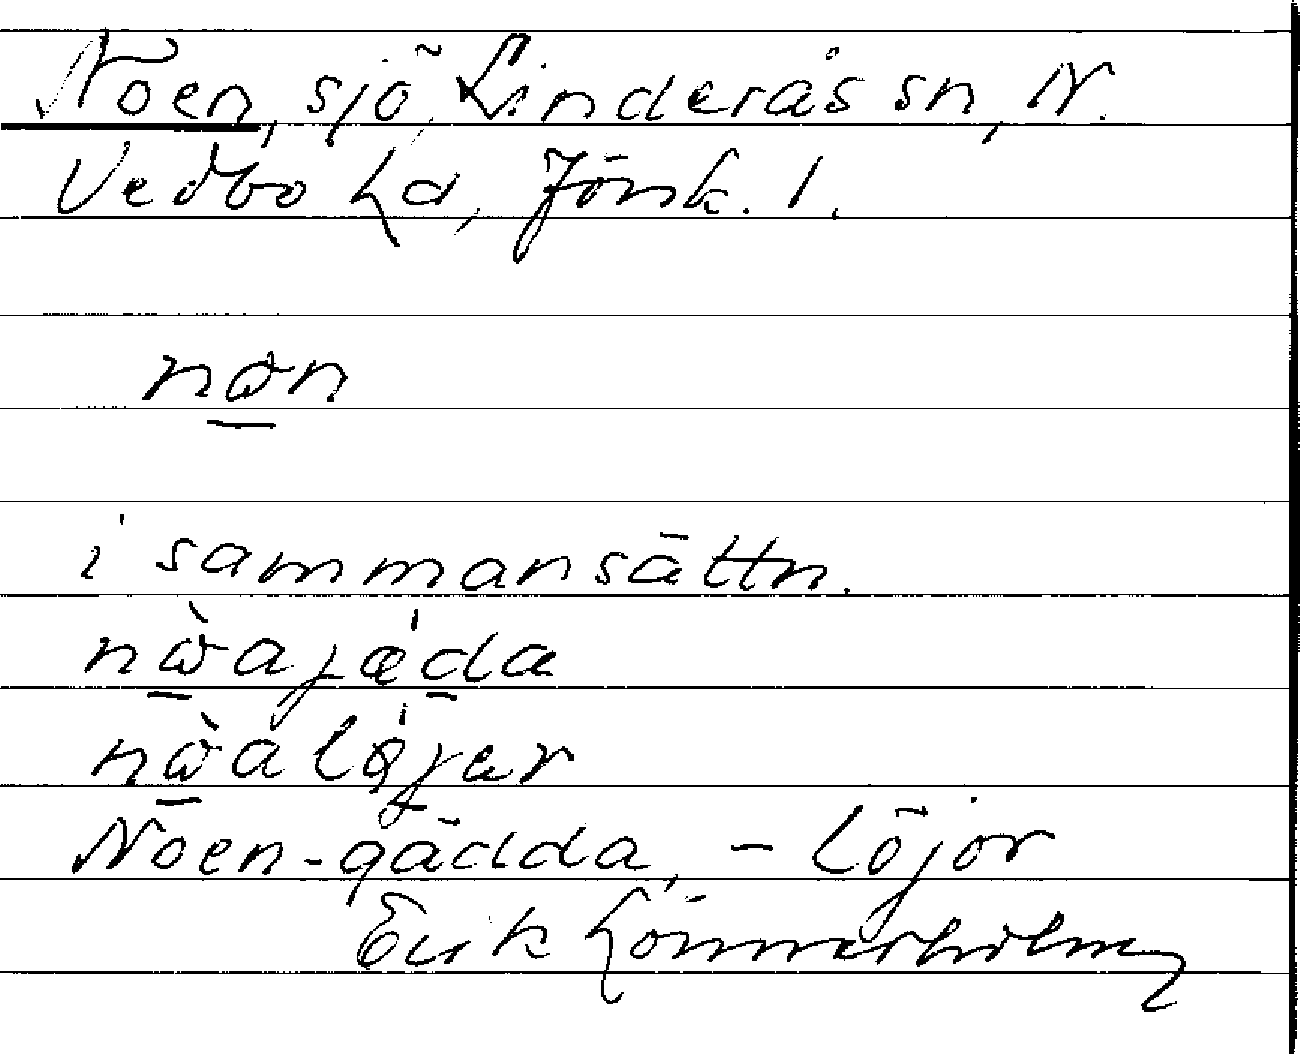 Noen, sjö, Linderås sn, N.
Vedbo hd, Jönk. l.
nɷn
i sammansättn.
nɷ̀ajæ̀da
nɷ̀alø̀jer
Noen-gädda, - löjor
Erik Lönnerholm